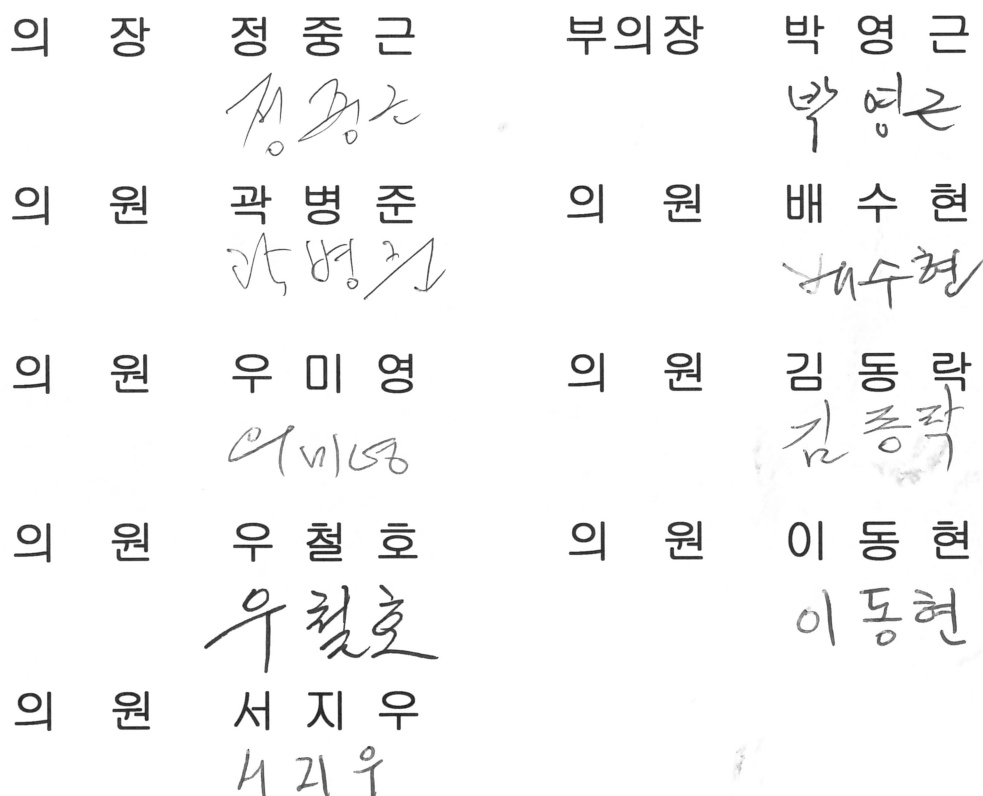 의 장 정 중 근 부의장 박 영 근
정 중 근 박 영 근
의 원 곽 병 준 의 원 배 수 현
곽 병 준 배 수 현
의 원 우 미 영 의 원 김 동 락
우 미 영 김 동 락
의 원 우 철 호 의 원 이 동 현
우 철 호 이 동 현
의 원 서 지 우
서 지 우